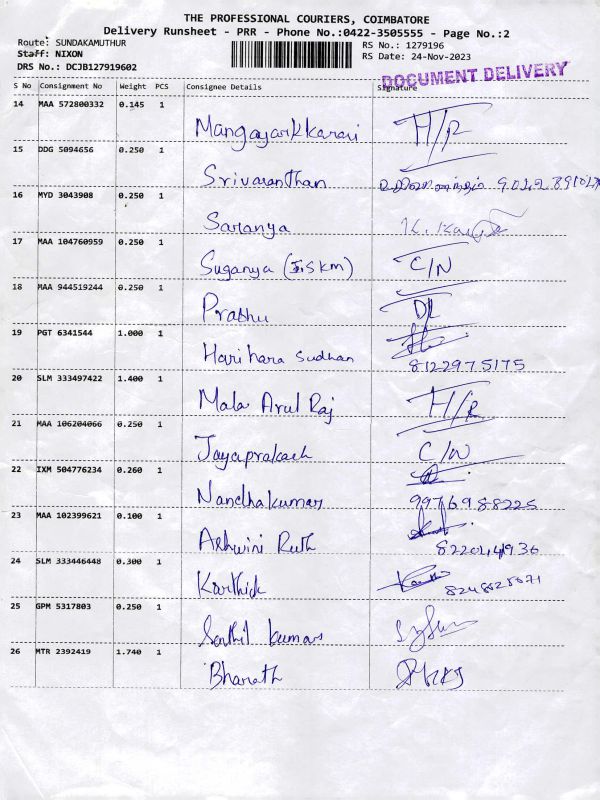 THE PROFESSIONAL COURIERS, COIMBATORE
Delivery Runsheet - PRR - Phone No.:0422-3505555 - Page No.:2
Route: SUNDAKAMUTHUR
Staff: NIXON
DRS No.: DCJB127919602
RS No.: 1279196
RS Date: 24-Nov-2023
DOCUMENT DELIVERY
S No Consignment No Weight PCS Consignee Details Signature
14 MAA 572800332 0.145 1
Mangayarkkarasi H/R
15 DDG 5094656 0.250 1
Srivaranthan
16 MYD 3043908 0.250 1
Saranya
17 MAA 104760959 0.250 1
Suganya C/N
18 MAA 944519244 0.250 1
Prabhu DL
19 PGT 6341544 1.000 1
Hari hara Sudhan 8122975175
20 SLM 333497422 1.400 1
Mala Arul Raj H/R
21 MAA 106204066 0.250 1
Jayaprakash C/N
22 IXM 504776234 0.260 1
Nandhakumar 9976988225
23 MAA 102399621 0.100 1
Ashwini Ruth
24 SLM 333446448 0.300 1
Karthick
25 GPM 5317803 0.250 1
Senthil kumar
26 MTR 2392419 1.740 1
Bharath